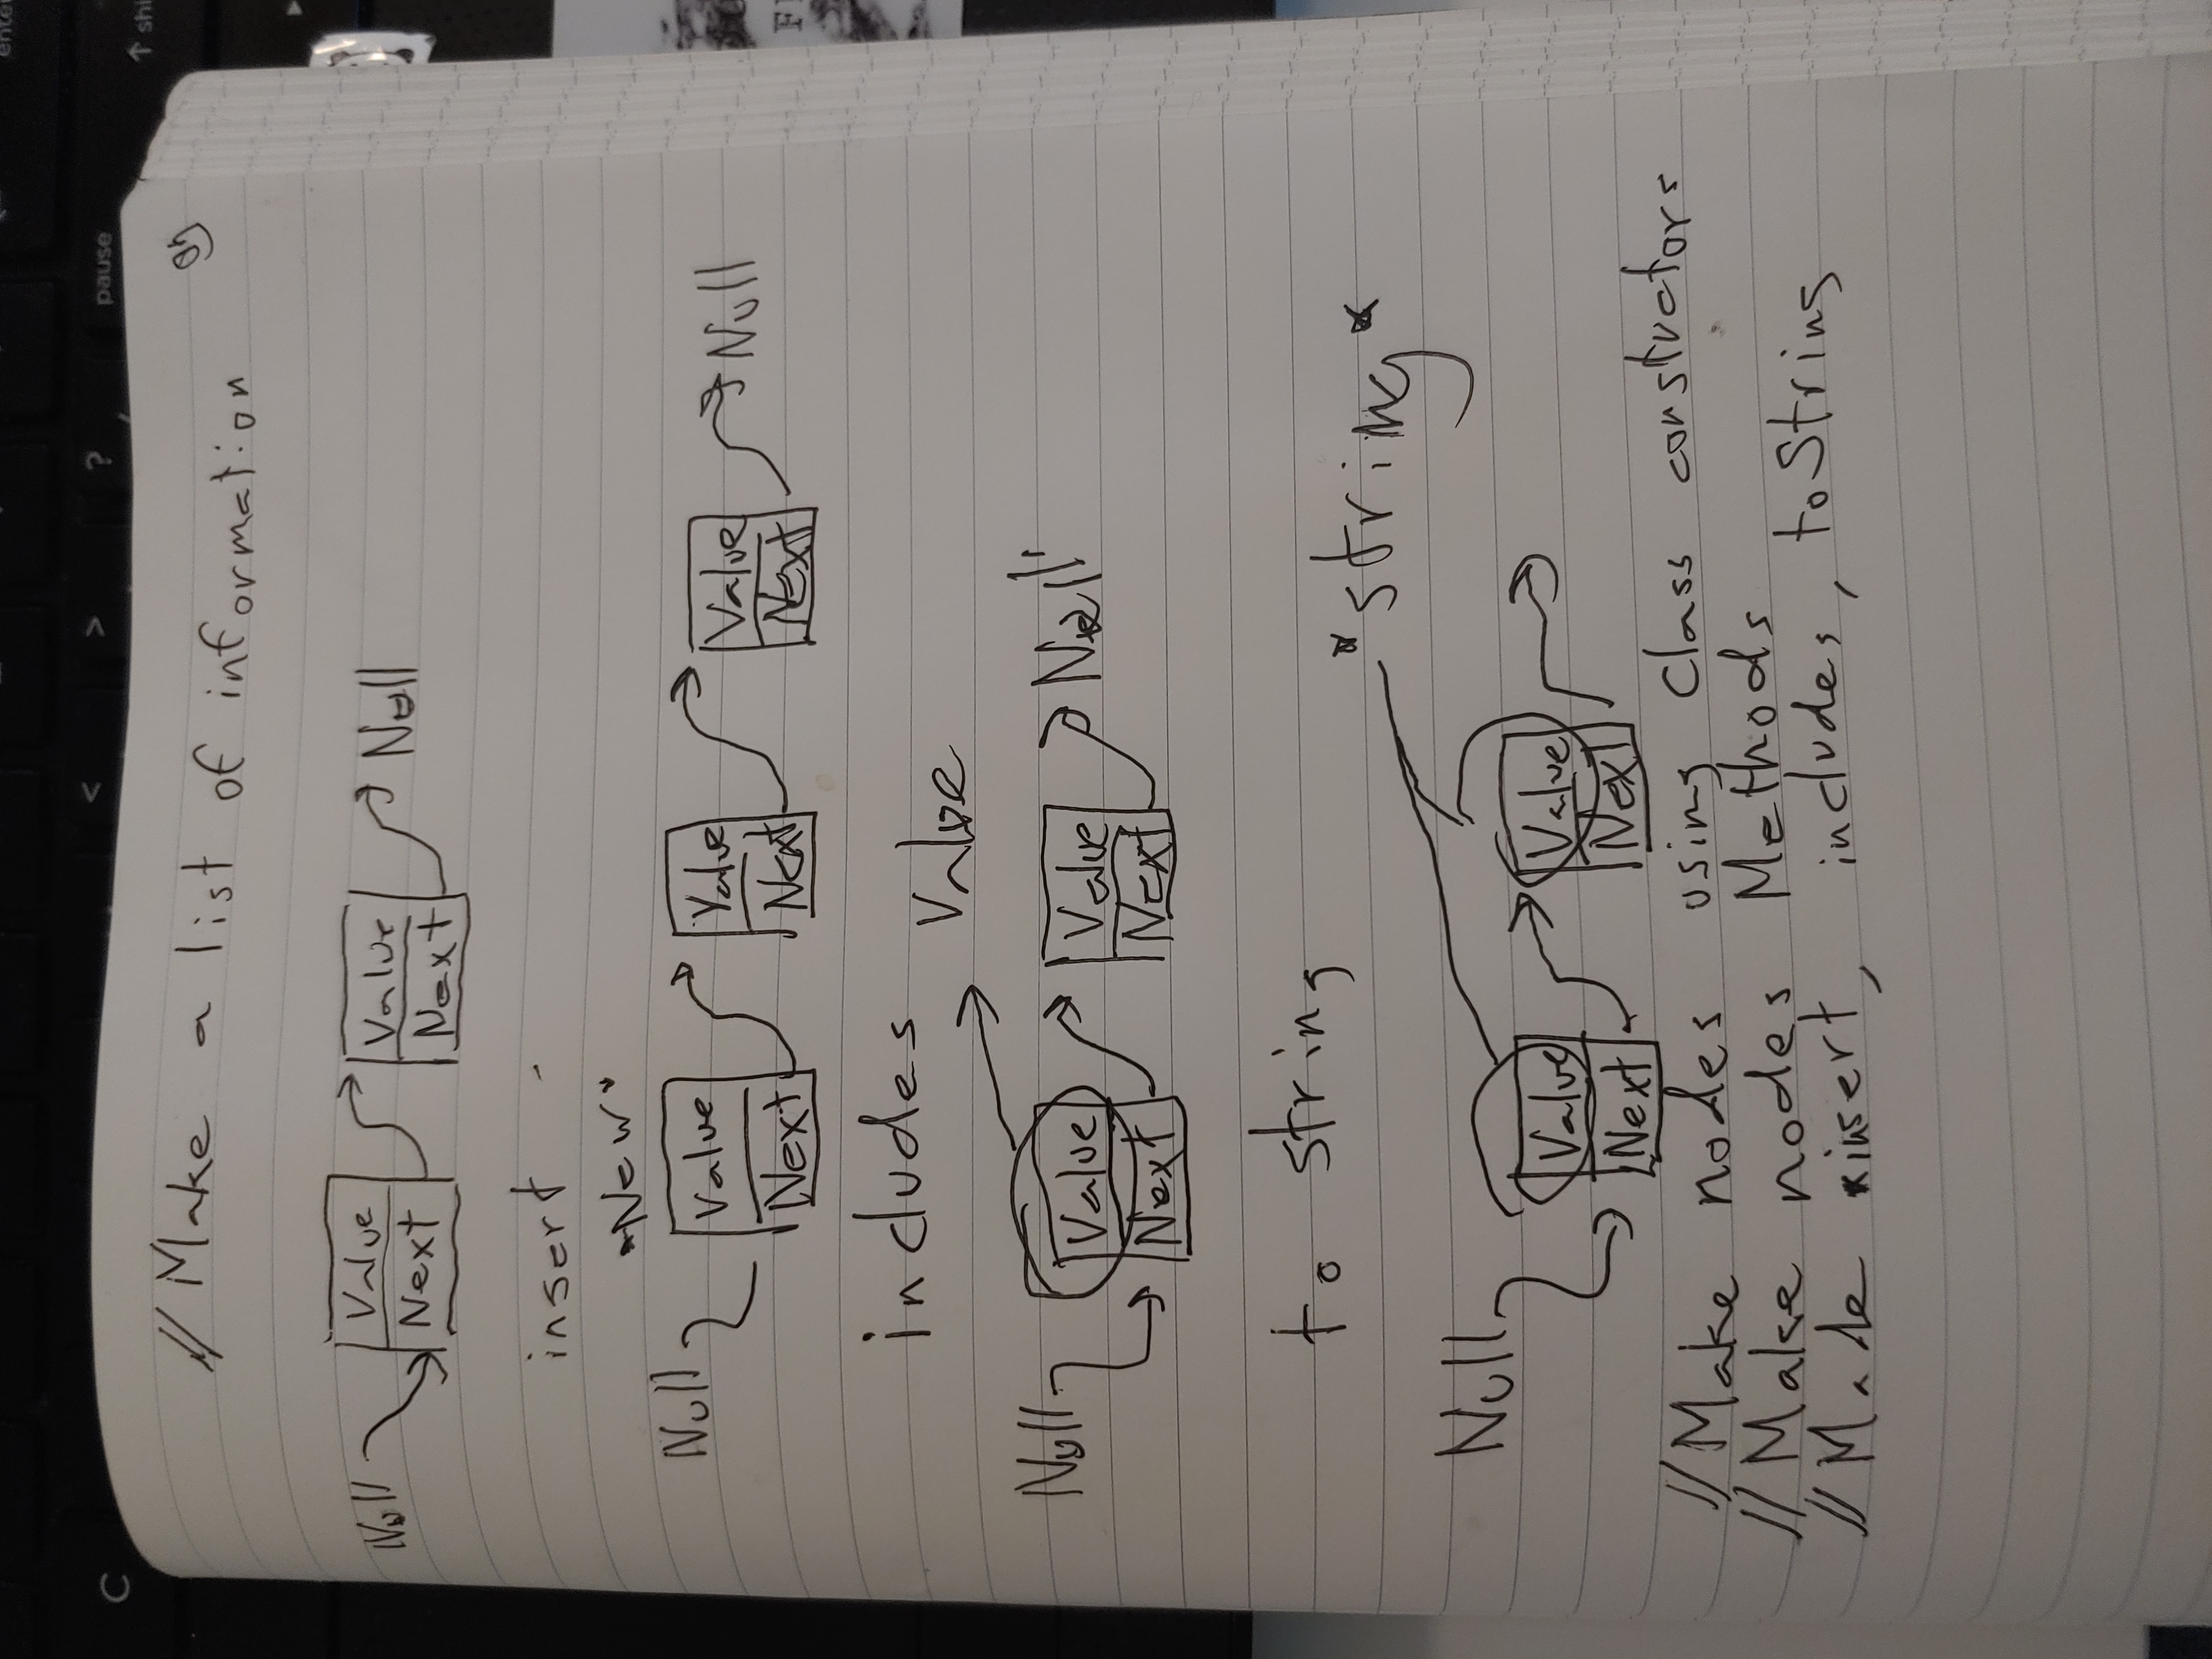 C
<
>
?
pause
enter
↑ shi
// Make a list of information
Null
Value
Next
Value
Next
Null
insert -
*New*
Null
Value
Next
Value
Next
Value
Next
Null
includes
Value
Null
Value
Next
Value
Next
Null
to string
*string*
Null
Value
Next
Value
Next
// Make nodes using Class constuctors
// Make nodes Methods
// Made insert, includes, toString